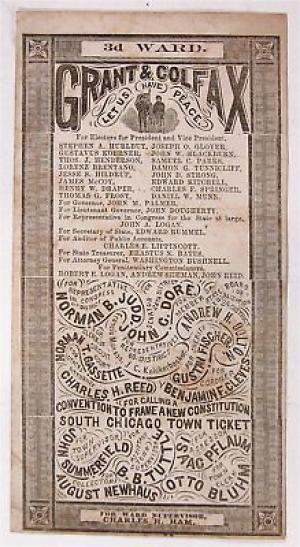 3d WARD.
GRANT & COLFAX
LET US HAVE PEACE
For Electors for President and Vice President,
STEPHEN A. HURLBUT, JOSEPH O. GLOVER,
GUSTAVUS KOERNER, JOHN W. BLACKBURN,
THOS. J. HENDERSON, SAMUEL C. PARKS,
LORENZ BRENTANO, DAMON G. TUNNICLIFF,
JESSE S. HILDRUP, JOHN D. STRONG,
JAMES McCOY, EDWARD KITCHELL,
HENRY W. DRAPER, CHARLES F. SPRINGER,
THOMAS G. FROST, DANIEL W. MUNN.
For Governor, JOHN M. PALMER.
For Lieutenant Governor, JOHN DOUGHERTY.
For Representative in Congress for the State at large,
JOHN A. LOGAN.
For Secretary of State, EDWARD RUMMEL.
For Auditor of Public Accounts,
CHARLES E. LIPPINCOTT.
For State Treasurer, ERASTUS N. BATES.
For Attorney General, WASHINGTON BUSHNELL.
For Penitentiary Commissioners,
ROBERT E. LOGAN, ANDREW SHUMAN, JOHN REID.
FOR REPRESENTATIVE IN CONGRESS
NORMAN B. JUDD
SENATOR
JOHN C. DORE
BOARD
ANDREW H. DOLTON
REPRESENTATIVES
NORMAN T. GASSETTE
GUSTIN FISCHER
CHARLES H. REED
BENJAMIN F. CLEVES
FOR CALLING A
CONVENTION TO FRAME A NEW CONSTITUTION
SOUTH CHICAGO TOWN TICKET
JOHN SUMMERFIELD
B. B. TUTTLE
ISTAC PFLAUM
FOR COLLECTOR
AUGUST NEWHAUS
OTTO BLUHM
FOR WARD SUPERVISOR,
CHARLES H. HAM.